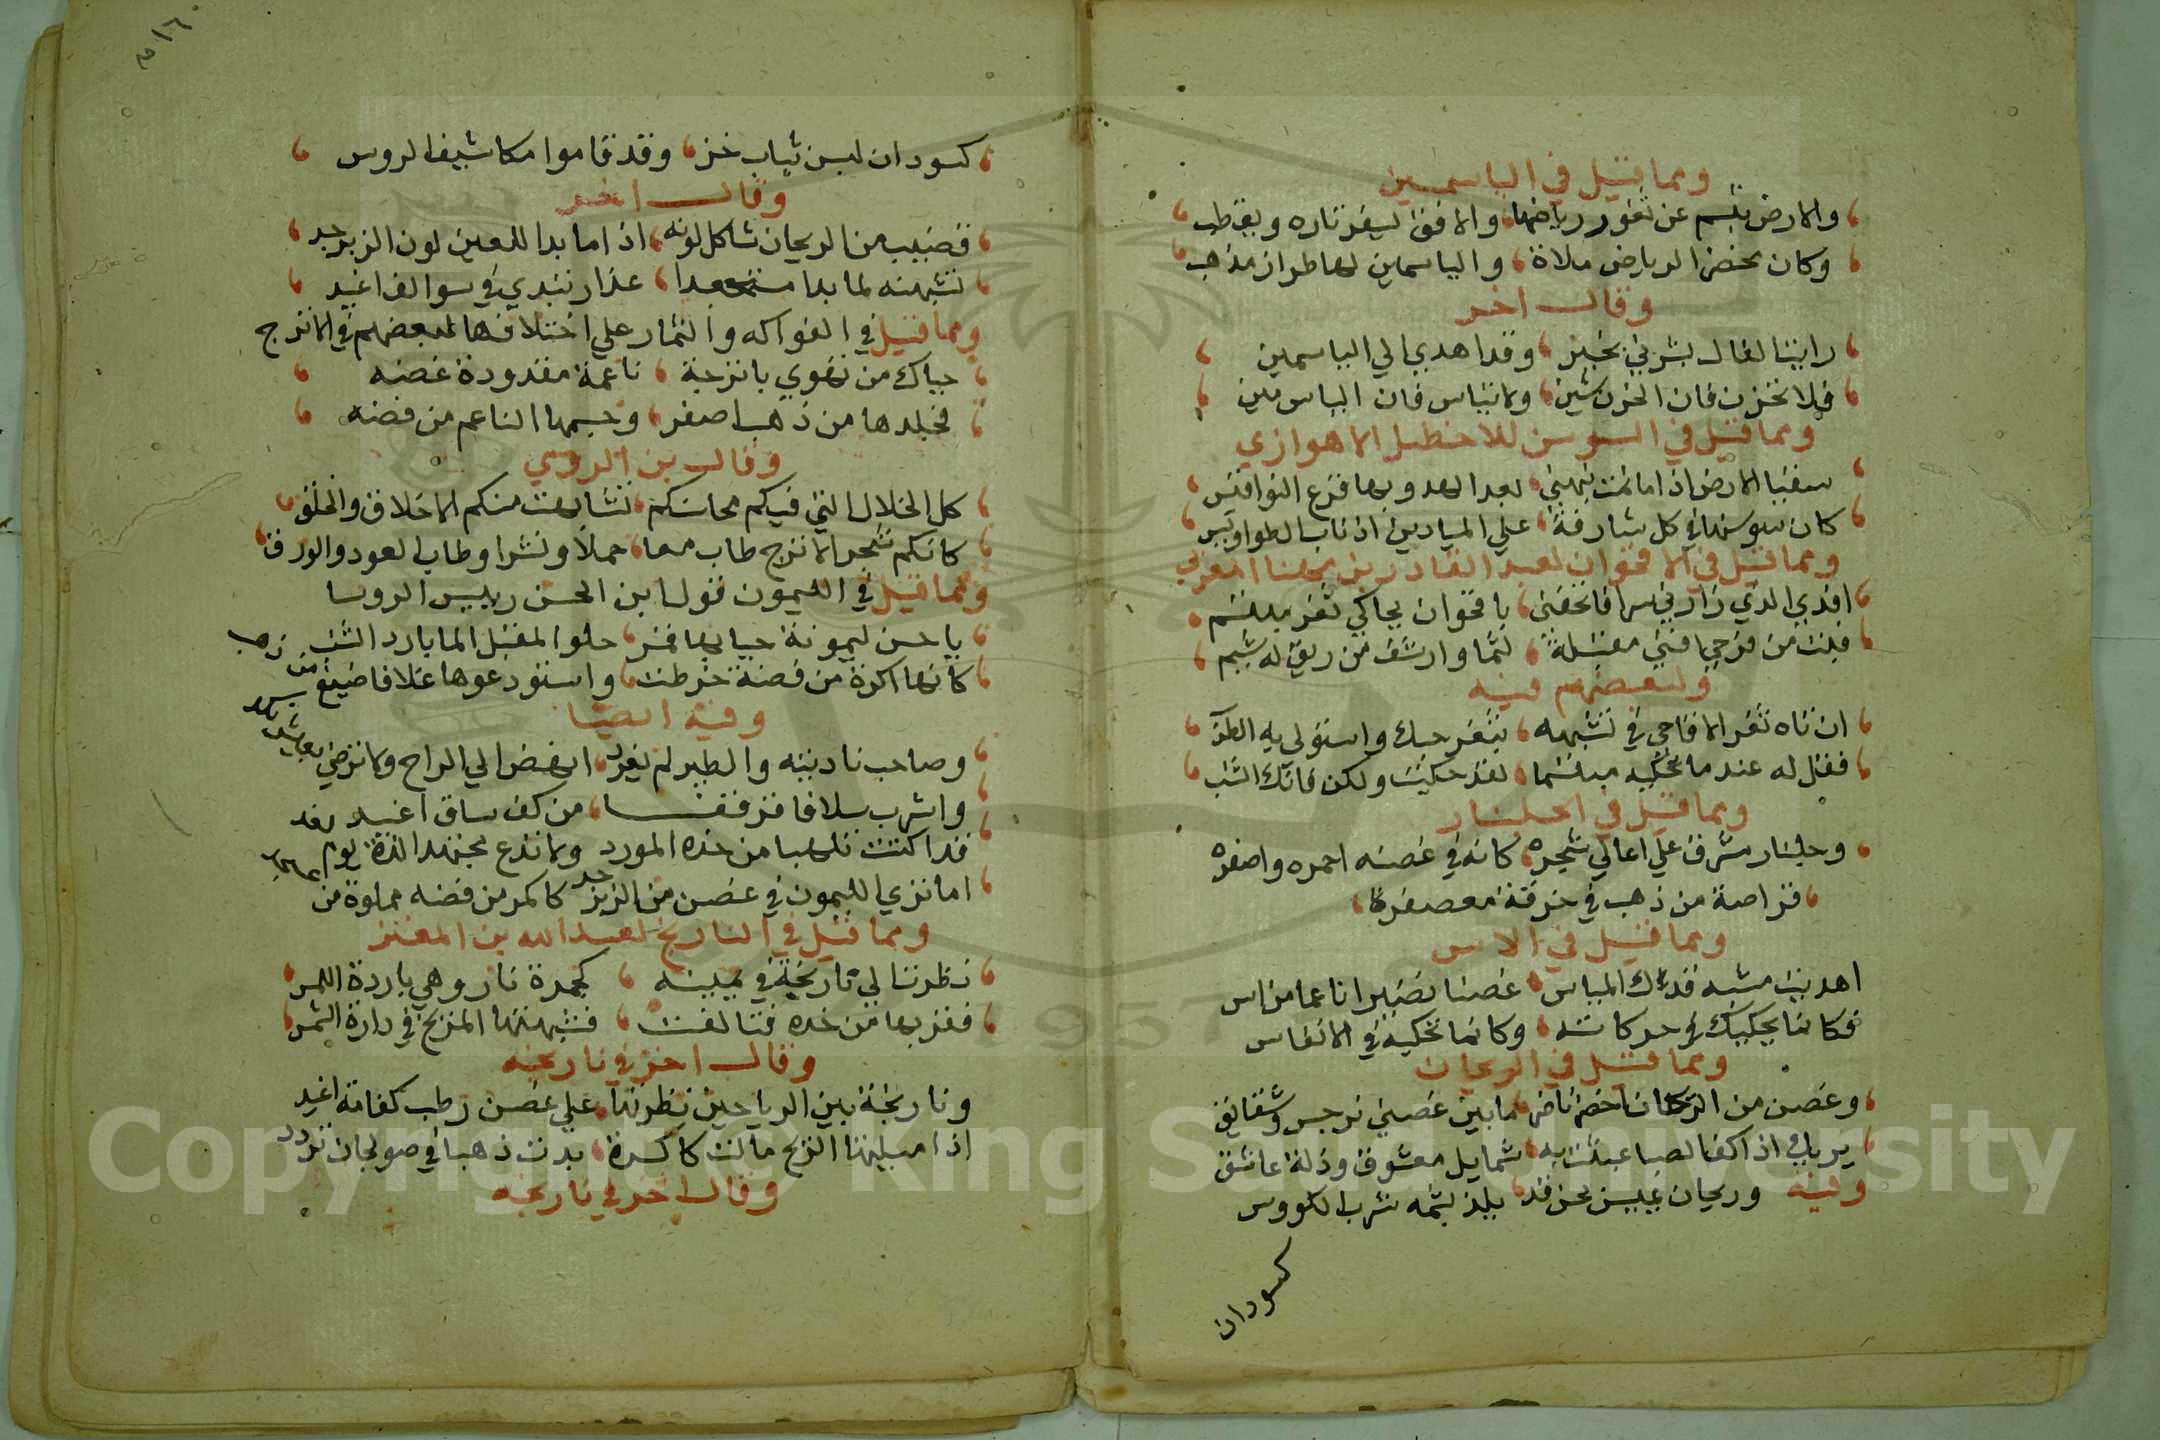 ومما قيل في الياسمين
والارض تبسم عن ثغور رياضها والافق يسفر تاره ويقطب
وكان مخضر الرياض ملاة والياسمين لها طراز مذهب
وقال اخر
راينا الفال بشرني بخير وقد اهدي الي الياسمين
فلا تحزن فان الحزن شين ولا تياس فان الياس مين
ومما قيل في السوسن للاخطل الاهوازي
سقيا الارض اذا ما نمت نبهني بعد الهدو بها قرع النواقيس
كان سوسنها في كل شارقة علي الميادين اذناب الطواويس
ومما قيل في الاقحوان لعبد القادر بن مهنا المغربي
افدي الذي زارني سرا فاتحفني باقحوان يحاكي ثغر مبتسم
فبت من فرحي افني مقبلة لثما وارشف من ريق له شبم
ولبعضهم فيه
ان تاه ثغر الاقاحي في تشبهه بثغر حبك واستولي به الطرب
فقل له عندما تحكيه مبتسما لقد حكيت ولكن فاتك الشنب
ومما قيل في الجلنار
وجلنار مشرف علي اعالي شجره كانه في غصنه احمره واصفره
قراصة من ذهب في خرقة معصفرة
ومما قيل في الاس
اهديت مشبه قدك المياس غصنا نضيرا ناعما من اس
فكانما يحكيك في حركاته وكانما تحكيه في الانفاس
ومما قيل في الريحان
وغصن من الريحان اخضر ناضر ما بين غصني نرجس وشقايق
يريك اذا كف الصبا عبثت به شمايل معشوق وذلة عاشق
وفيه وريحان يميس بحسن قد يلذ بشمه شرب الكووس
كسودان
٣١٦
كسودان لبسن ثياب خز وقد قاموا مكاشيف الروس
وقال اخر
قضيب من الريحان شاكل لونه اذا ما بدا للعين لون الزبرجد
تشبهته لما بدا متجعدا عذار تبدي في سوالف اغيد
ومما قيل في الفواكه والثمار علي اختلافها لبعضهم في الاترج
حياك من تهوي باترجة ناعمة مقدودة غضه
فجلدها من ذهب اصفر وجسمها الناعم من فضه
وقال بن الرومي
كل الخلال التي فيكم محاسنكم تشابهت منكم الاخلاق والخلق
كانكم شجر الاترج طاب معا حملا ونشرا وطاب العود والورق
ومما قيل في الليمون قول ابن الحسن رييس الروسا
يا حسن ليمونة حيا بها قمر حلو المقبل الما بارد الشنب
كانها اكرة من فضة خرطت واستودعوها غلافا صيغ من ذهب
وفيه ايضا
وصاحب ناديته والطير لم يغرد انهض الي الراح ولا ترضي بعيش نكد
واشرب سلافا قرقفا من كف ساق اغيد
قد اكتست تلهبا من خده المورد ولا تدع مجتهدا لذة يوم لغد
اما تري الليمون في غصن من الزبرجد كاكر من فضه مملوة من عسجد
ومما قيل في النارنج لعبد الله بن المعتز
نظرت الي نارنجة في يمينه كجمرة نار وهي باردة اللمس
فقربها من خده فتالفت فشبهتها المريخ في دارة الشمس
وقال اخر في نارنجه
ونارنجة بين الرياحين نظرتها علي غصن رطب كقامة اغيد
اذا ميلتها الريح مالت كاكرة بدت ذهبا في صولجان زبرجد
وقال اخر في نارنجه
Copyright © King Saud University
1957